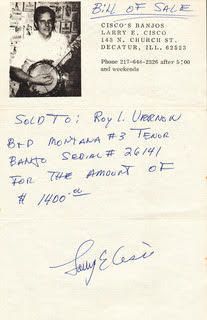 BILL OF SALE
CISCO'S BANJOS
LARRY E. CISCO
143 N. CHURCH ST.
DECATUR, ILL. 62523
Phone 217-644-2326 after 5:00
and weekends
SOLD TO: ROY L. VERNON
B&D MONTANA #3 TENOR
BANJO SERIAL # 26141
FOR THE AMOUNT OF
$ 1400.00
Larry E Cisco